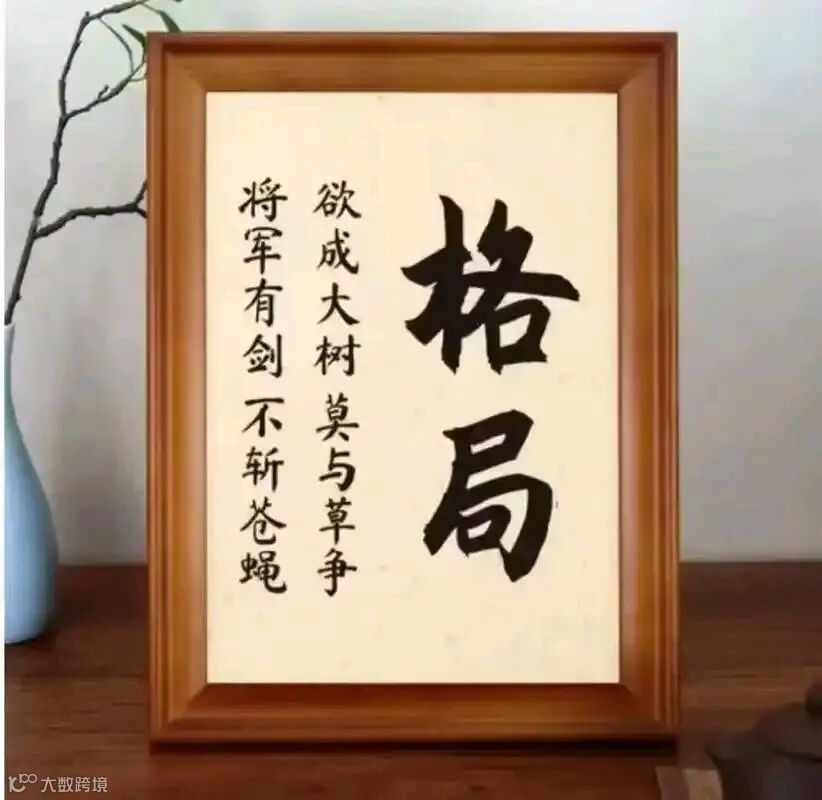 格局
欲成大树 莫与草争
将军有剑 不斩苍蝇
大数跨境